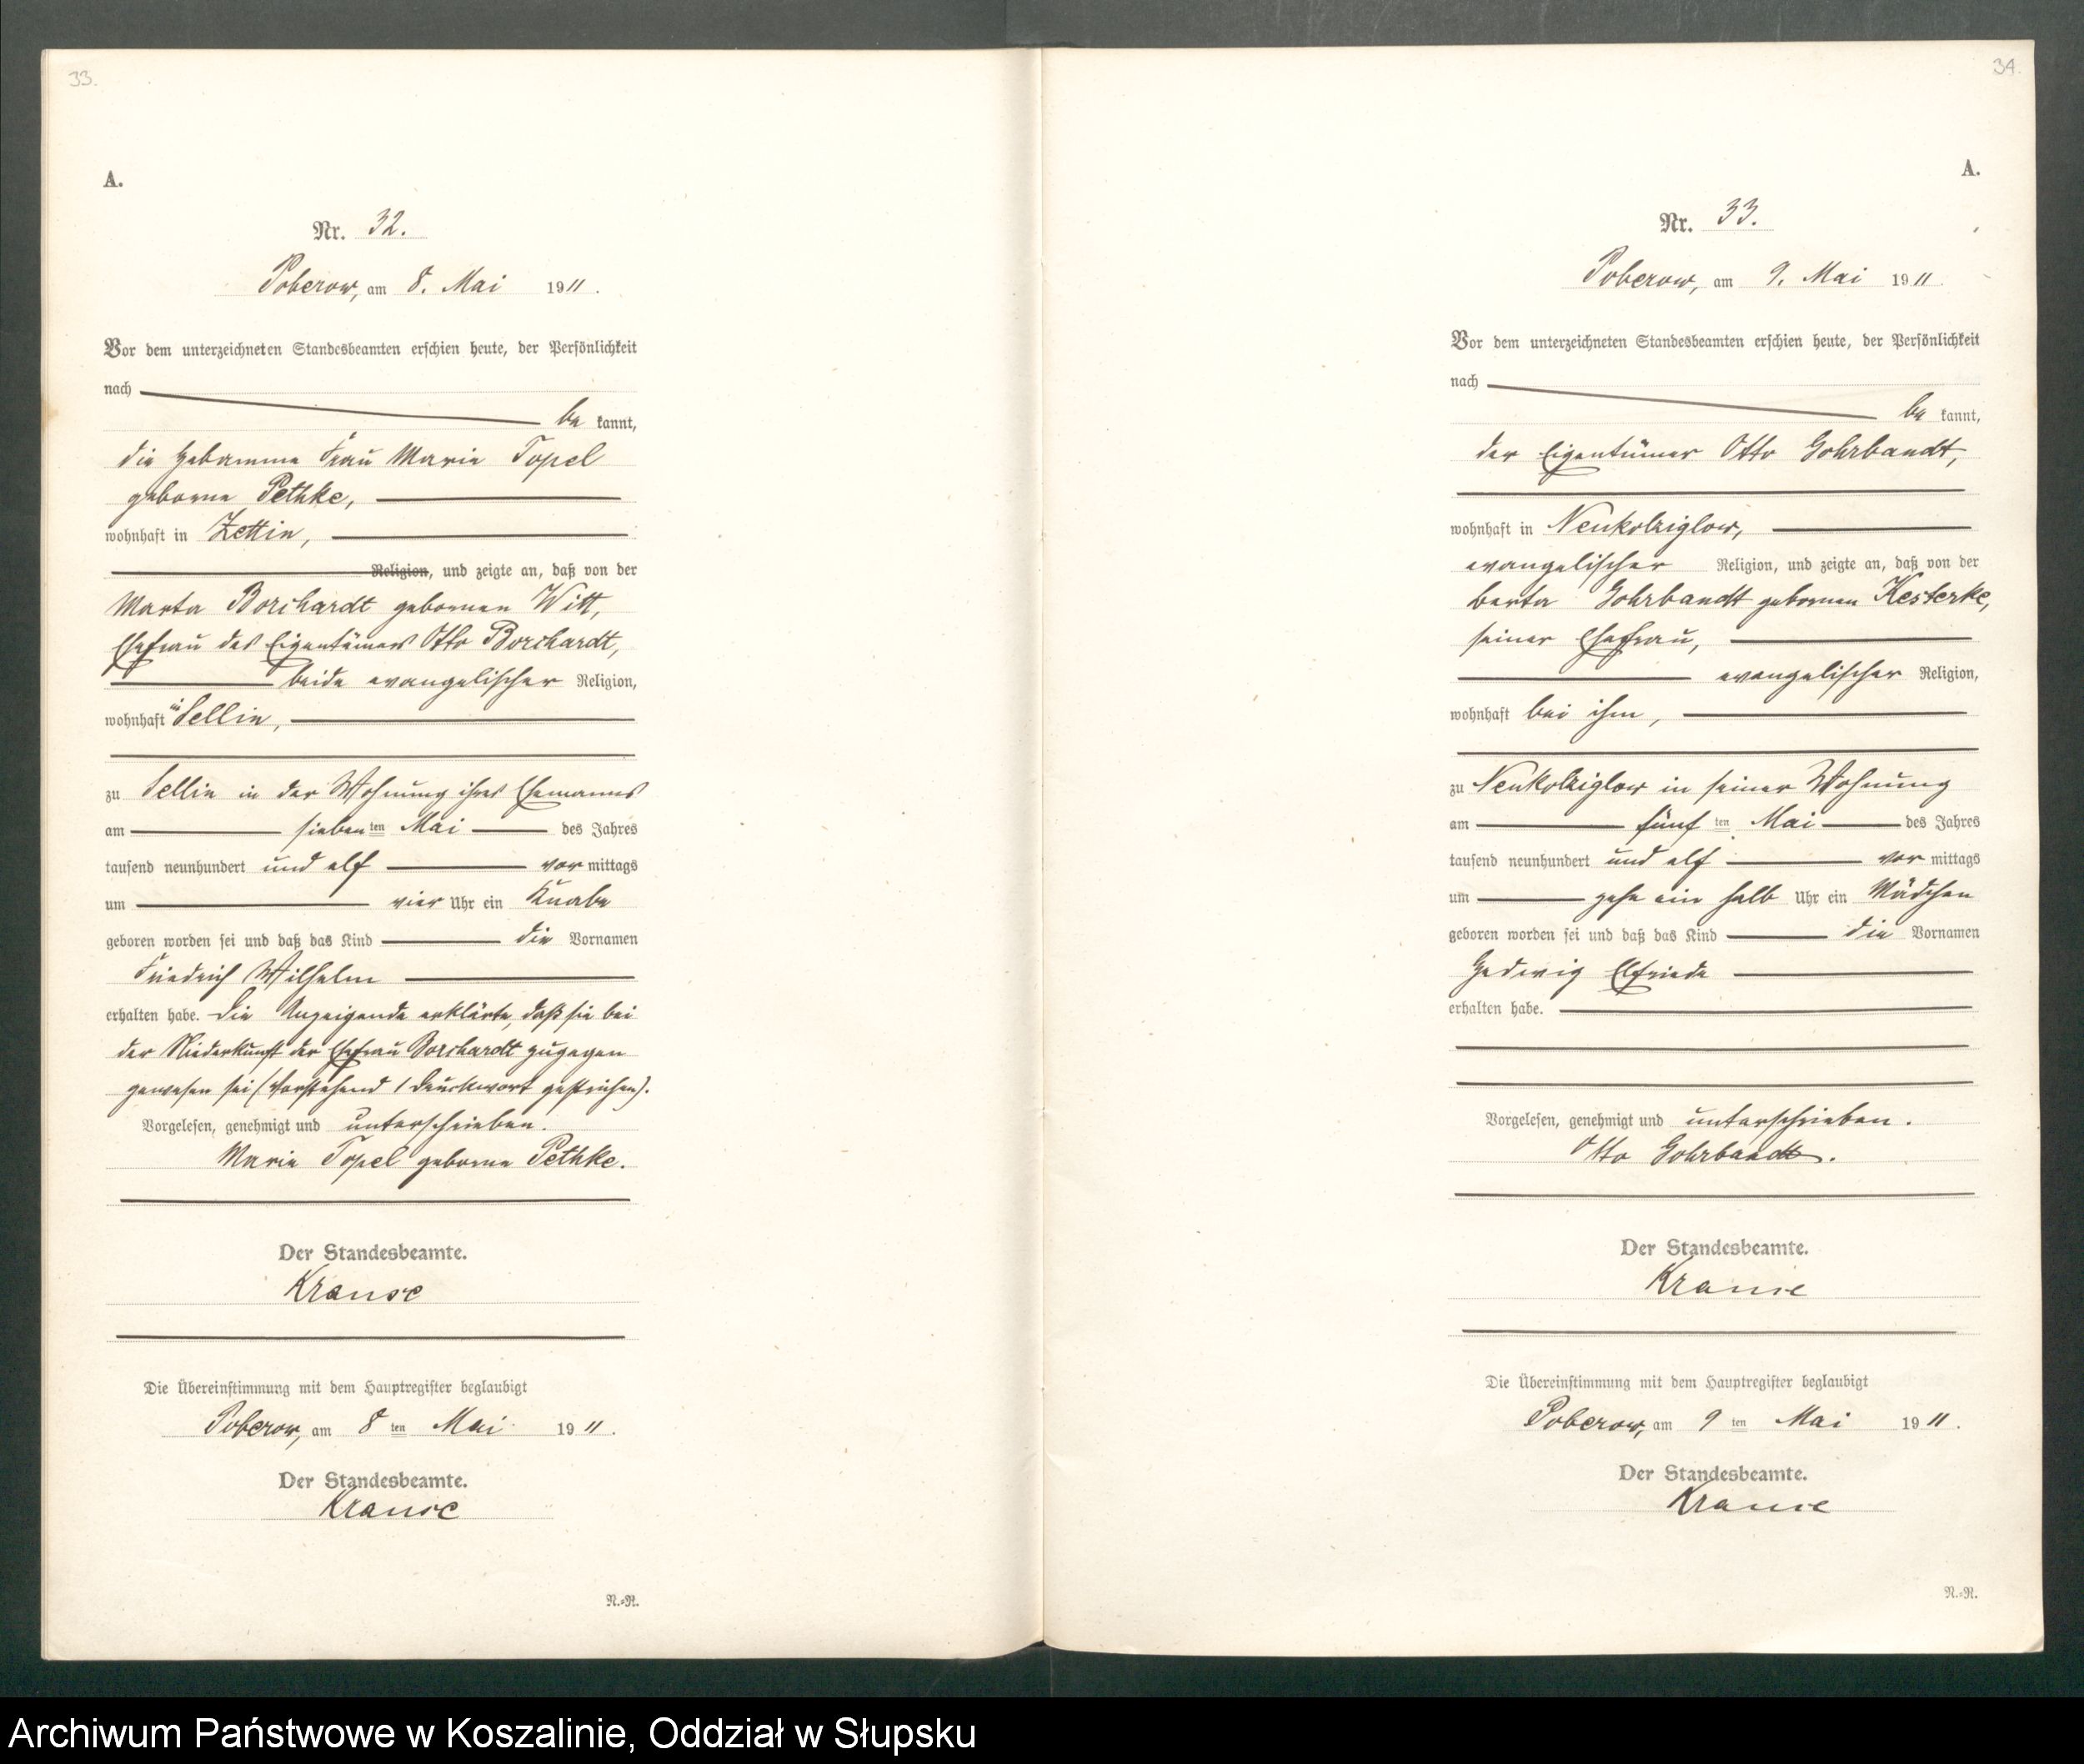 33.
A.
Nr. 32.
Poberow, am 8. Mai 1911.
Vor dem unterzeichneten Standesbeamten erschien heute, der Persönlichkeit
nach
be kannt,
die Hebamme Frau Marie Topel
geborne Pethke,
wohnhaft in Zettin,
Religion, und zeigte an, daß von der
Marta Borchardt gebornen Witt,
Ehefrau des Eigentümers Otto Borchardt,
beide evangelischer Religion,
wohnhaft in Sellin,
zu Sellin in der Wohnung ihres Ehemanns
am sieben ten Mai des Jahres
tausend neunhundert und elf vor mittags
um vier Uhr ein Knabe
geboren worden sei und daß das Kind die Vornamen
Friedrich Wilhelm
erhalten habe. Die Anzeigende erklärte, daß sie bei
der Niederkunft der Ehefrau Borchardt zugegen
gewesen sei (Vorstehend 1 Druckwort gestrichen).
Vorgelesen, genehmigt und unterschrieben.
Marie Topel geborne Pethke.
Der Standesbeamte.
Krause
Die Übereinstimmung mit dem Hauptregister beglaubigt
Poberow, am 8 ten Mai 1911.
Der Standesbeamte.
Krause
N.=R.
34.
A.
Nr. 33.
Poberow, am 9. Mai 1911.
Vor dem unterzeichneten Standesbeamten erschien heute, der Persönlichkeit
nach
be kannt,
der Eigentümer Otto Gohrbandt,
wohnhaft in Neukolziglow,
evangelischer Religion, und zeigte an, daß von der
Berta Gohrbandt gebornen Kesterke,
seiner Ehefrau,
evangelischer Religion,
wohnhaft bei ihm,
zu Neukolziglow in seiner Wohnung
am fünf ten Mai des Jahres
tausend neunhundert und elf vor mittags
um zehn ein halb Uhr ein Mädchen
geboren worden sei und daß das Kind die Vornamen
Hedwig Elfriede
erhalten habe.
Vorgelesen, genehmigt und unterschrieben.
Otto Gohrbandt.
Der Standesbeamte.
Krause
Die Übereinstimmung mit dem Hauptregister beglaubigt
Poberow, am 9 ten Mai 1911.
Der Standesbeamte.
Krause
N.=R.
Archiwum Państwowe w Koszalinie, Oddział w Słupsku